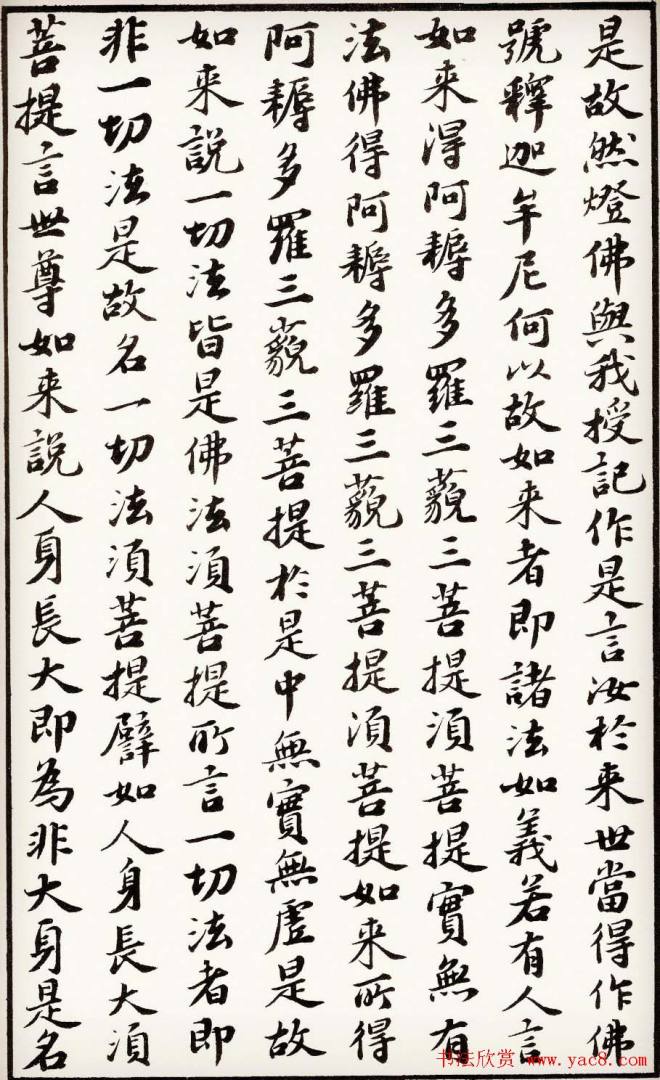 是故然燈佛與我授記作是言汝於来世當得作佛
號釋迦牟尼何以故如来者即諸法如義若有人言
如来得阿耨多羅三藐三菩提湏菩提實無有
法佛得阿耨多羅三藐三菩提湏菩提如来所得
阿耨多羅三藐三菩提於是中無實無虛是故
如来說一切法皆是佛法湏菩提所言一切法者即
非一切法是故名一切法湏菩提譬如人身長大湏
菩提言世尊如来說人身長大即為非大身是名
书法欣赏 www.yac8.com